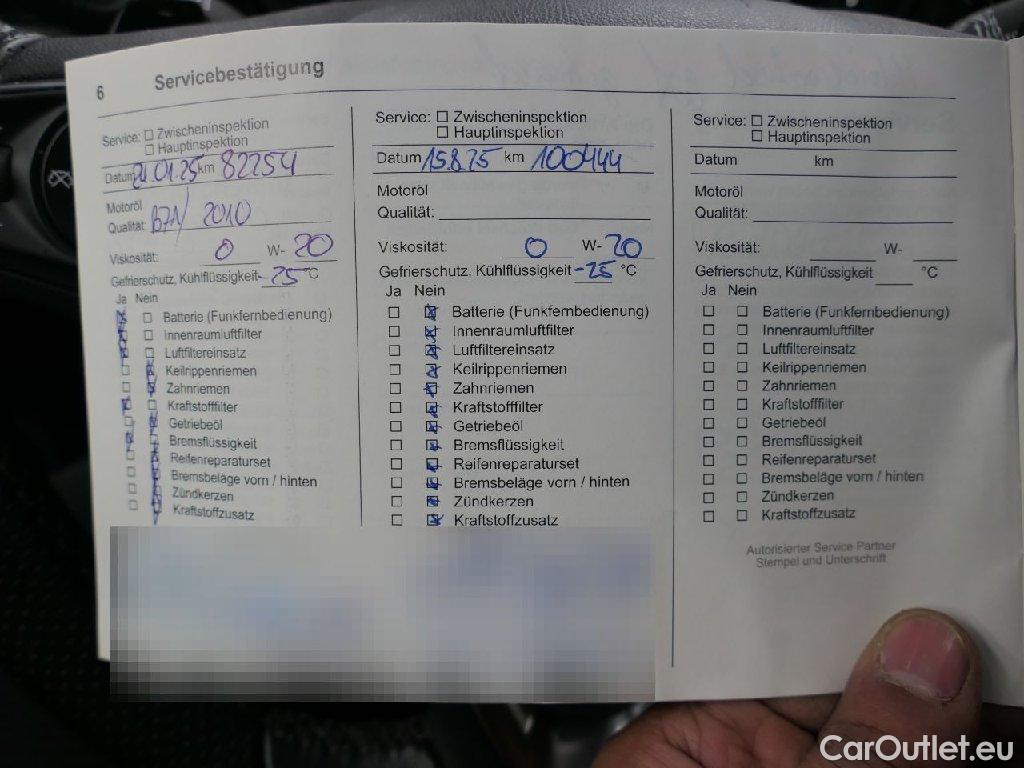 6 Servicebestätigung
Service: ☐ Zwischeninspektion
☐ Hauptinspektion
Datum 21.01.25 km 82254
Motoröl
Qualität: 2010
Viskosität: 0 W-20
Gefrierschutz, Kühlflüssigkeit -25 °C
Ja Nein
☒ ☐ Batterie (Funkfernbedienung)
☒ ☐ Innenraumluftfilter
☒ ☐ Luftfiltereinsatz
☐ ☒ Keilrippenriemen
☐ ☒ Zahnriemen
☒ ☐ Kraftstofffilter
☐ ☒ Getriebeöl
☒ ☐ Bremsflüssigkeit
☐ ☒ Reifenreparaturset
☐ ☒ Bremsbeläge vorn / hinten
☐ ☒ Zündkerzen
☐ ☒ Kraftstoffzusatz
Service: ☐ Zwischeninspektion
☐ Hauptinspektion
Datum 15.8.25 km 100444
Motoröl
Qualität:
Viskosität: 0 W-20
Gefrierschutz, Kühlflüssigkeit -25 °C
Ja Nein
☐ ☒ Batterie (Funkfernbedienung)
☐ ☒ Innenraumluftfilter
☐ ☒ Luftfiltereinsatz
☐ ☒ Keilrippenriemen
☐ ☒ Zahnriemen
☐ ☒ Kraftstofffilter
☐ ☒ Getriebeöl
☐ ☒ Bremsflüssigkeit
☐ ☒ Reifenreparaturset
☐ ☒ Bremsbeläge vorn / hinten
☐ ☒ Zündkerzen
☐ ☒ Kraftstoffzusatz
Service: ☐ Zwischeninspektion
☐ Hauptinspektion
Datum km
Motoröl
Qualität:
Viskosität: W-
Gefrierschutz, Kühlflüssigkeit °C
Ja Nein
☐ ☐ Batterie (Funkfernbedienung)
☐ ☐ Innenraumluftfilter
☐ ☐ Luftfiltereinsatz
☐ ☐ Keilrippenriemen
☐ ☐ Zahnriemen
☐ ☐ Kraftstofffilter
☐ ☐ Getriebeöl
☐ ☐ Bremsflüssigkeit
☐ ☐ Reifenreparaturset
☐ ☐ Bremsbeläge vorn / hinten
☐ ☐ Zündkerzen
☐ ☐ Kraftstoffzusatz
Autorisierter Service Partner
Stempel und Unterschrift
CarOutlet.eu